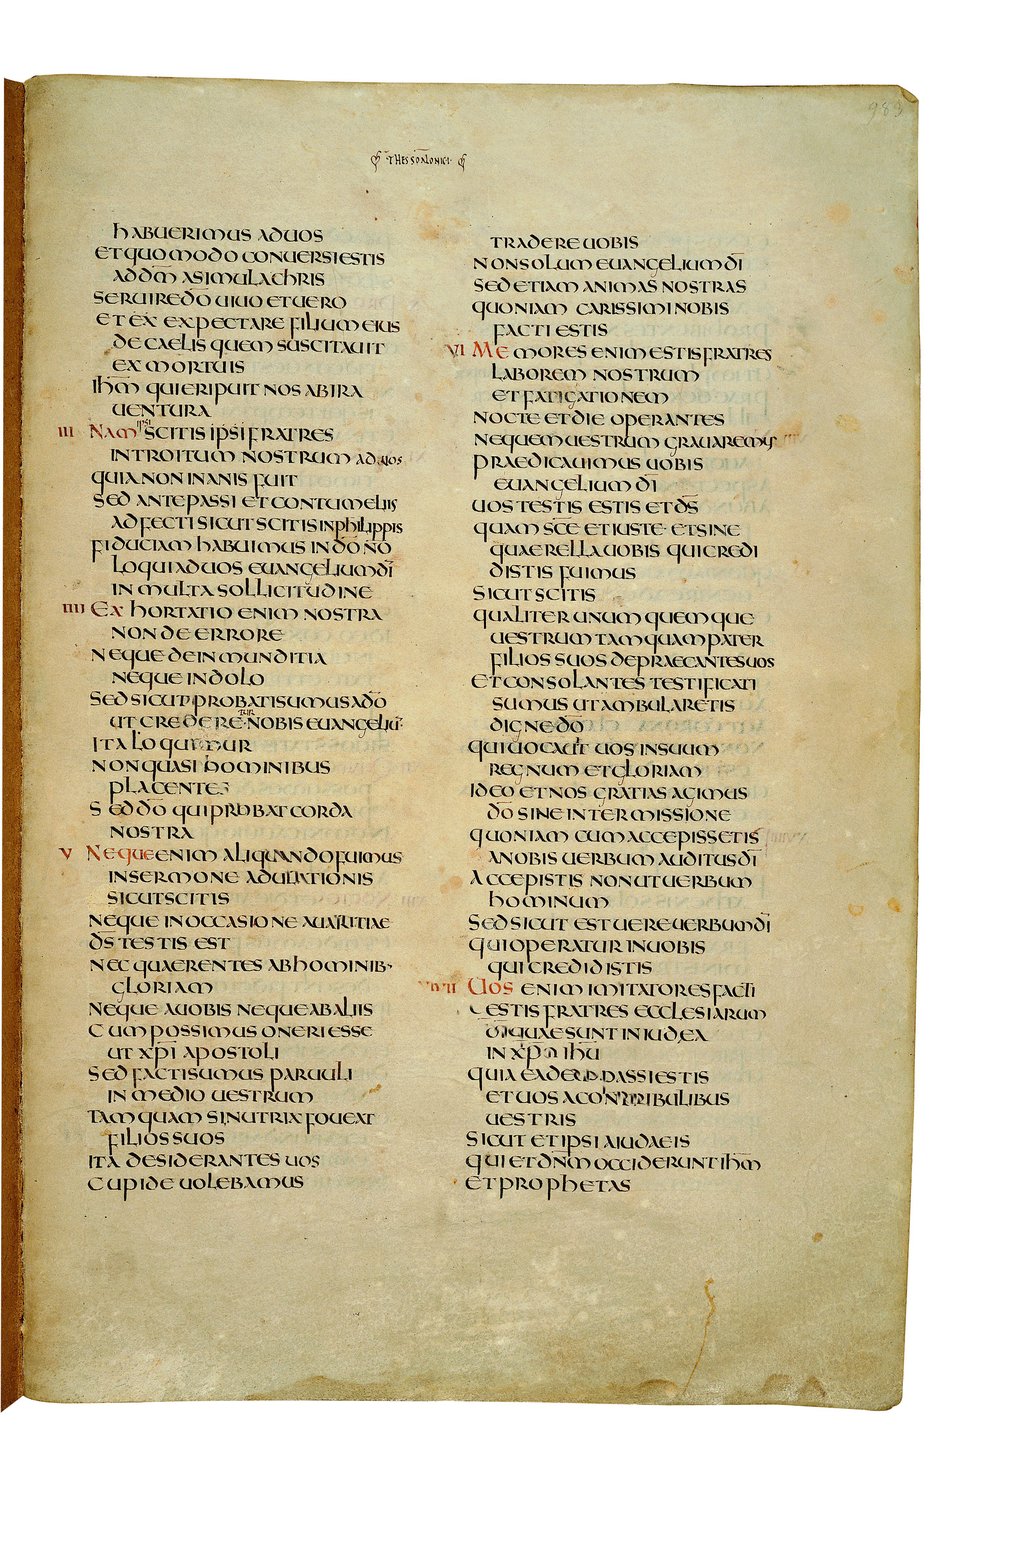 983
THESSALONICI
habuerimus aduos
et quomodo conuersi estis
ad dm̄ a simulachris
seruire dō uiuo et uero
et ex expectare filium eius
de caelis quem suscitauit
ex mortuis
ihm̄ qui eripuit nos ab ira
uentura
III Nam ipsi scitis ipsi fratres
introitum nostrum ad uos
quia non inanis fuit
sed ante passi et contumeliis
adfecti sicut scitis in philippis
fiduciam habuimus in dō nō
loqui ad uos euangelium dī
in multa sollicitudine
IIII Exhortatio enim nostra
non de errore
neque de inmunditia
neque in dolo
sed sicut probati sumus a dō
ut crederetur nobis euangeliū
ita loquimur
non quasi hominibus
placentes
sed dō qui probat corda
nostra
V Neque enim aliquando fuimus
in sermone adulationis
sicut scitis
neque in occasione auaritiae
ds̄ testis est
nec quaerentes ab hominib·
gloriam
neque a uobis neque ab aliis
cum possimus oneri esse
ut xpī apostoli
sed facti sumus paruuli
in medio uestrum
tamquam si nutrix foueat
filios suos
ita desiderantes uos
cupide uolebamus
tradere uobis
non solum euangelium dī
sed etiam animas nostras
quoniam carissimi nobis
facti estis
VI Memores enim estis fratres
laborem nostrum
et fatigationem
nocte et die operantes
ne quem uestrum grauaremus
praedicauimus uobis
euangelium dī
uos testis estis et ds̄
quam sc̄e et iuste et sine
quaerella uobis qui credi
distis fuimus
sicut scitis
qualiter unumquemque
uestrum tamquam pater
filios suos depraecantes uos
et consolantes testificati
sumus ut ambularetis
digne dō
qui uocauit uos in suum
regnum et gloriam
ideo et nos gratias agimus
dō sine intermissione
quoniam cum accepissetis
a nobis uerbum auditus dī
accepistis non ut uerbum
hominum
sed sicut est uere uerbum dī
qui operatur in uobis
qui credidistis
Uos enim imitatores facti
estis fratres ecclesiarum
dī quae sunt in iudea
in xpō ihū
quia eadem passi estis
et uos a contribulibus
uestris
sicut et ipsi a iudaeis
qui et dn̄m occiderunt ihm̄
et prophetas